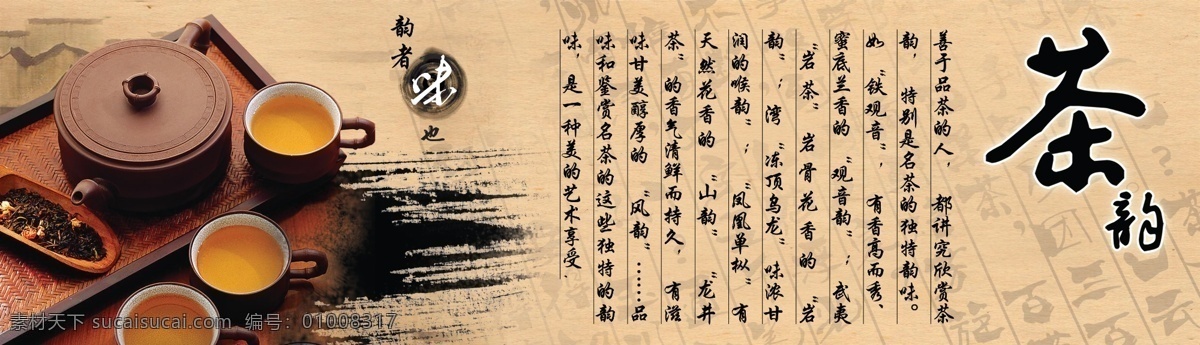 茶韵
善于品茶的人， 都讲究欣赏茶
韵， 特别是名茶的独特韵味。
如 “铁观音”， 有香高而秀、
蜜底兰香的 “观音韵”； 武夷
“岩茶” 岩骨花香的 “岩
韵”；湾 “冻顶乌龙” 味浓甘
润的喉韵”；“凤凰单枞” 有
天然花香的 “山韵” “龙井
茶” 的香气清鲜而持久， 有滋
味甘美醇厚的 “风韵” ……品
味和鉴赏名茶的这些独特的韵
味，是一种美的艺术享受.
韵者
味
也
素材天下 sucaisucai.com 编号：01008317